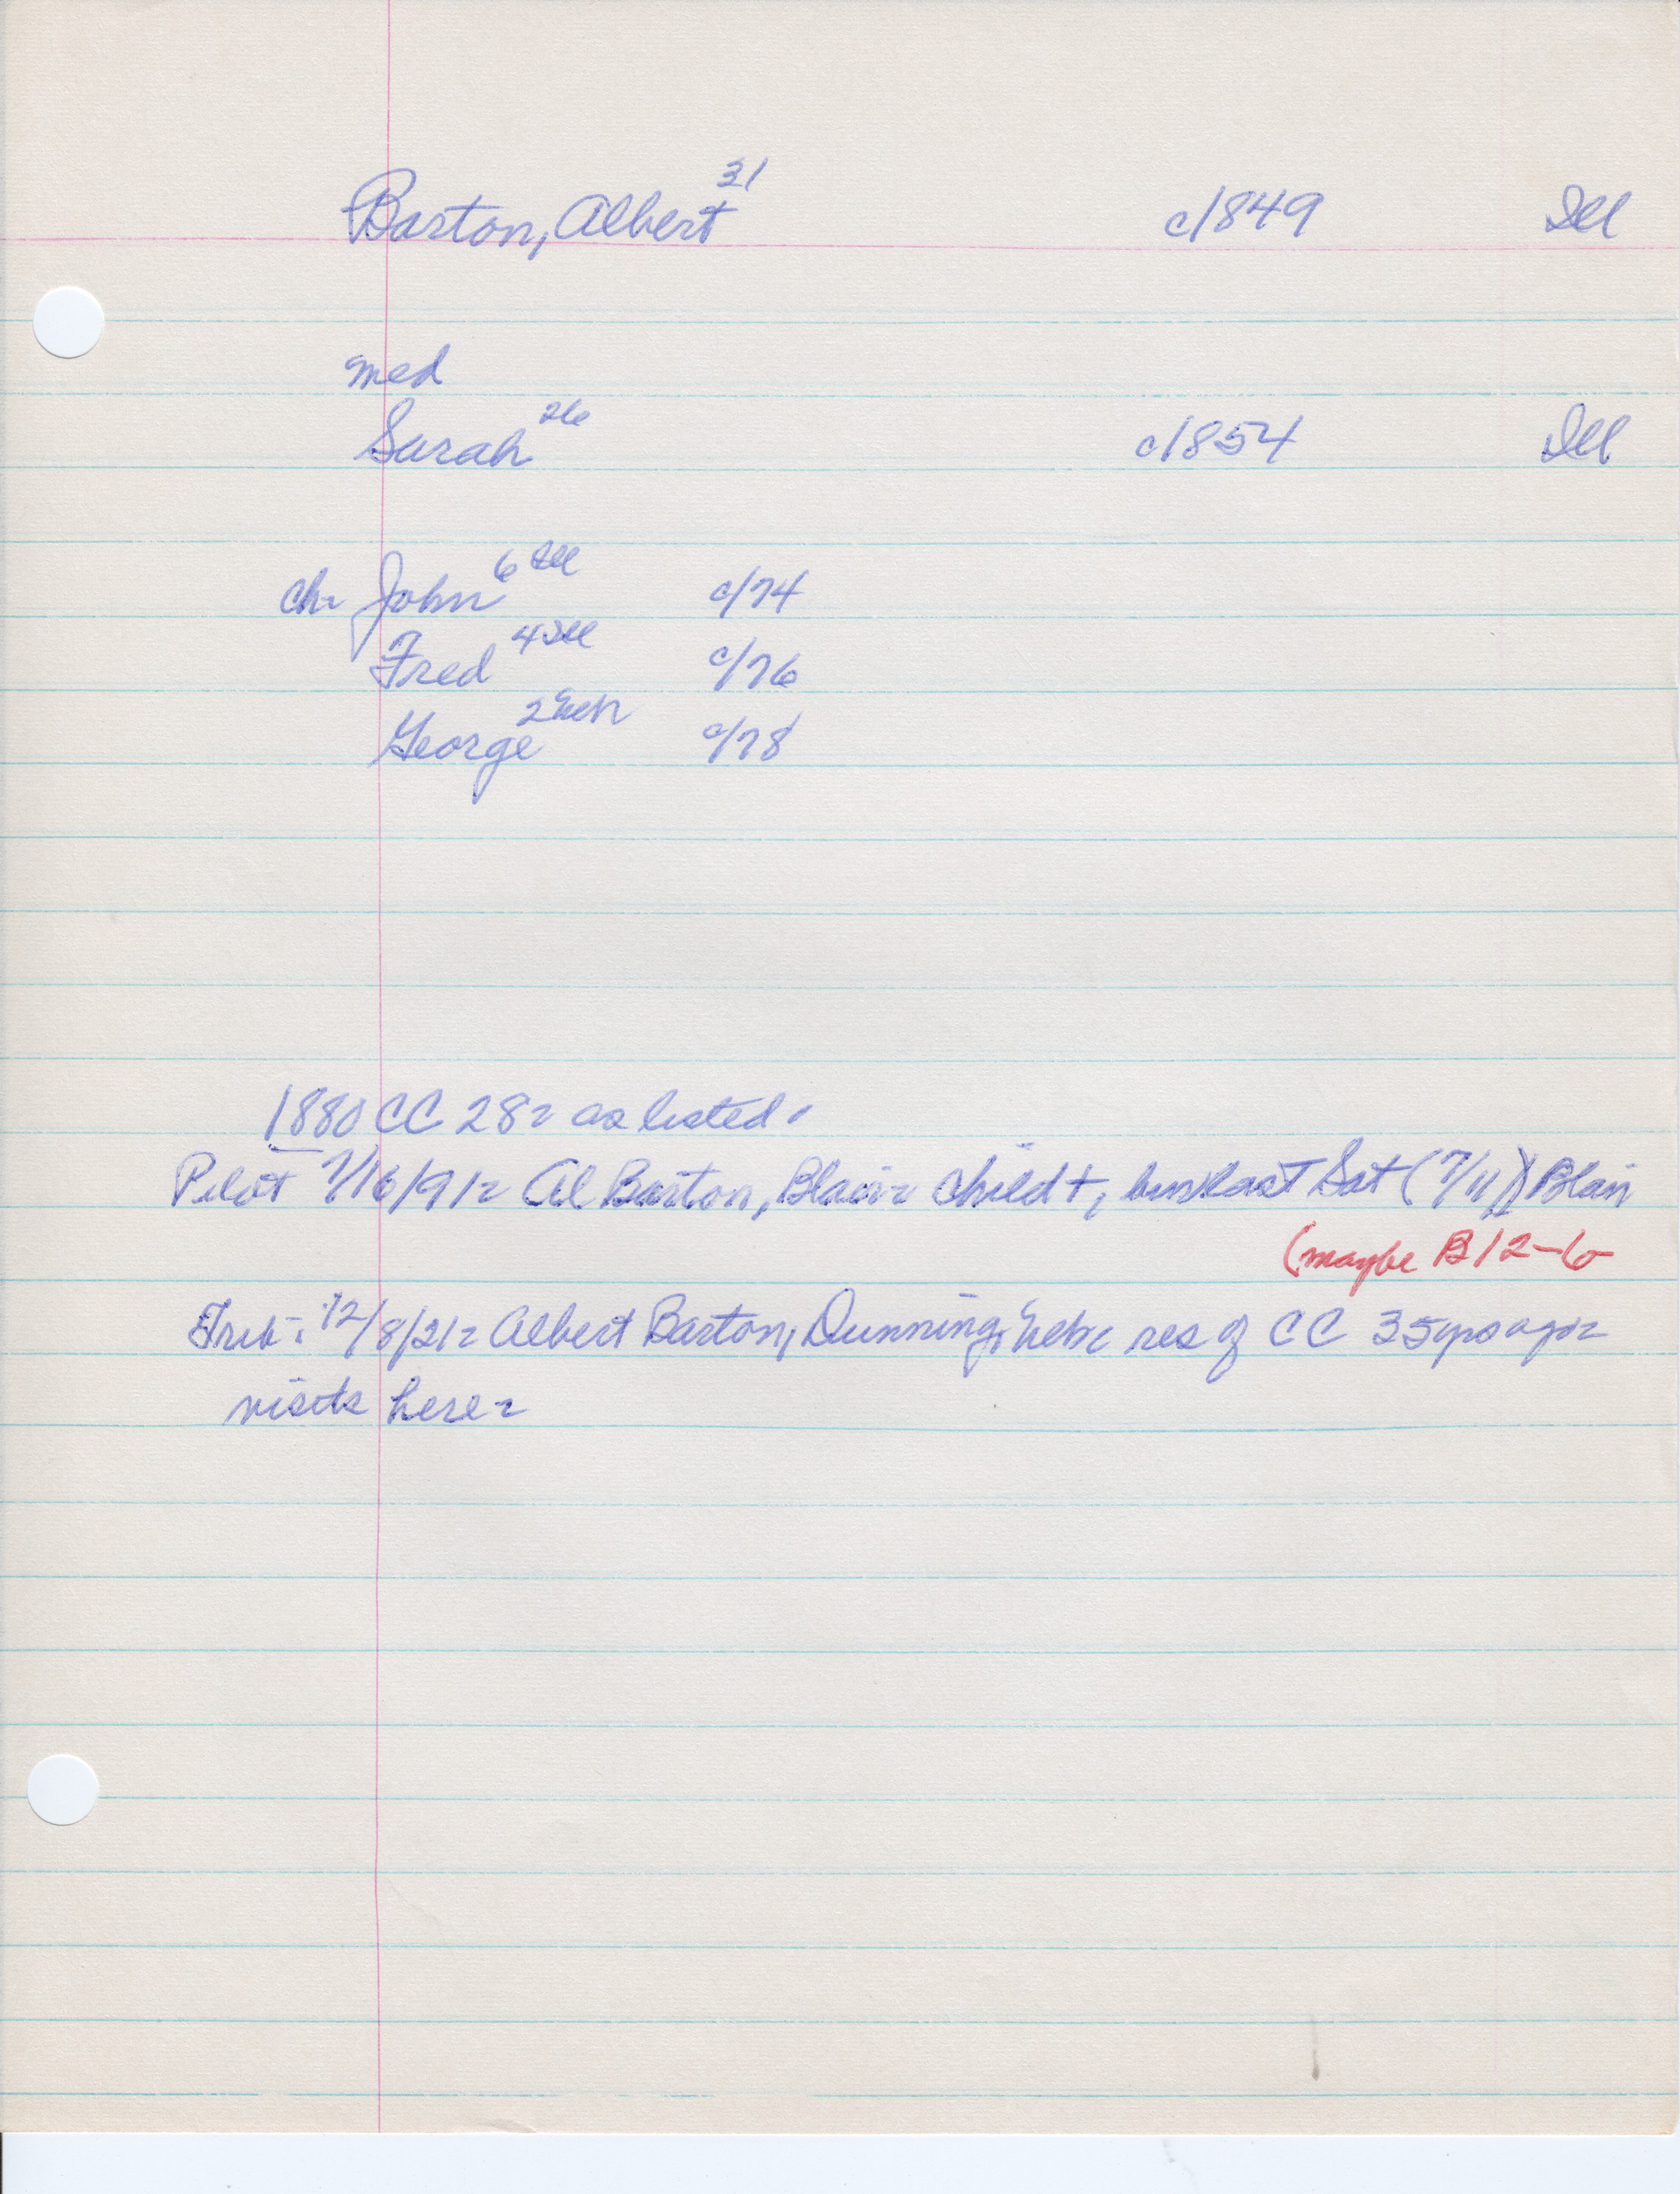 Barton, Albert 31 c/1849 Ill
med
Sarah 26 c/1854 Ill
ch- John 6 Ill c/74
Fred 4 Ill c/76
George 2 Neb c/78
1880 CC 28- as listed.
Pilot 7/16/91- Al Barton, Blair- child +, bur last Sat (7/11) Blair
(maybe B12-6
Trib: 12/8/21- Albert Barton, Dunning, Nebr res of CC 35 yrs ago-
visits here-